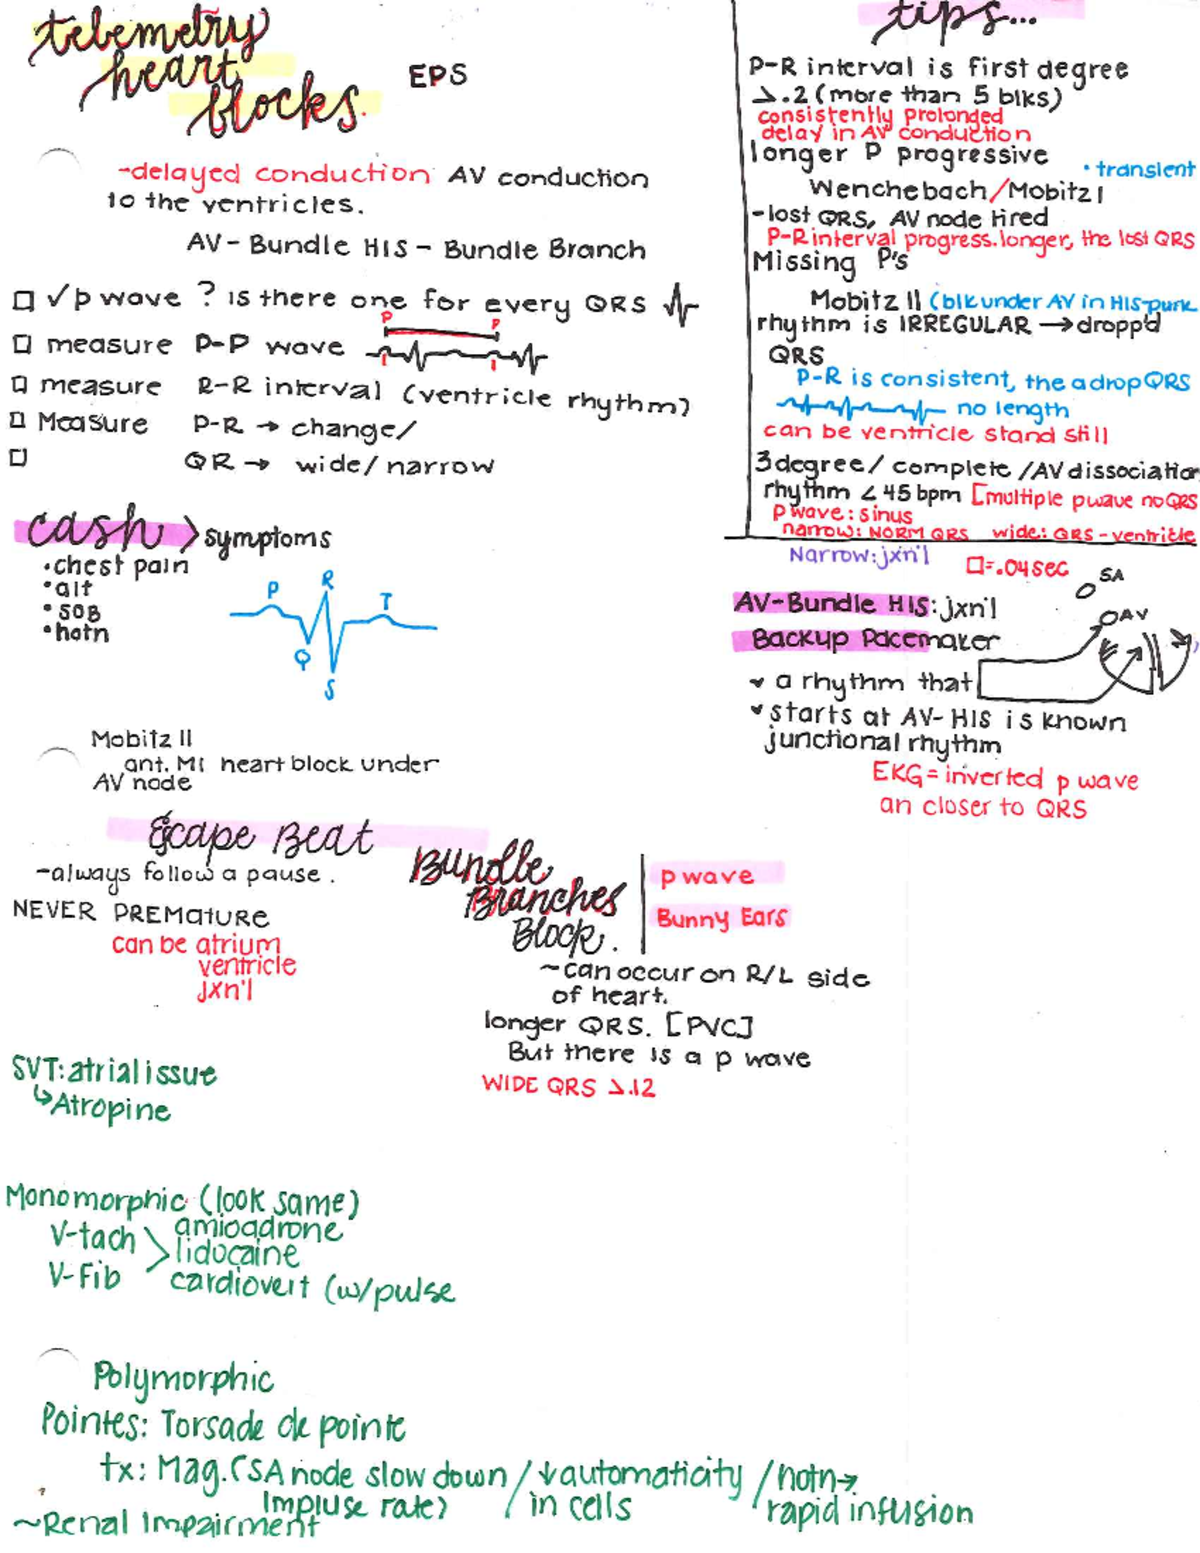 telemetry
heart
blocks.
EPS
-delayed conduction AV conduction
to the ventricles.
AV-Bundle HIS-Bundle Branch
✓p wave ? is there one for every QRS
measure P-P wave
P P
measure R-R interval (ventricle rhythm)
Measure P-R → change/
QR → wide/narrow
cash > symptoms
•chest pain
•alt
•SOB
•hotn
P
R
T
Q
S
Mobitz II
ant. MI heart block under
AV node
Escape Beat
-always follow a pause.
NEVER PREMATURE
can be atrium
ventricle
jxn'l
SVT: atrial issue
↳Atropine
Monomorphic (look same)
V-tach
V-Fib
amioadrone
lidocaine
cardiovert (w/pulse
Polymorphic
Pointes: Torsade de pointe
tx: Mag. (SA node slow down / ↓automaticity / hotn→
Impluse rate) / in cells / rapid infusion
~Renal Impairment
tips...
P-R interval is first degree
>.2 (more than 5 blks)
consistently prolonged
delay in AV conduction
longer P progressive
• transient
Wenchebach/Mobitz I
-lost QRS, AV node tired
P-R interval progress. longer, the lost QRS
Missing P's
Mobitz II (blk under AV in HIS-purk
rhythm is IRREGULAR → dropp'd
QRS
P-R is consistent, the a drop QRS
no length
can be ventricle stand still
3 degree/ complete /AV dissociation
rhythm < 45 bpm [multiple pwave no QRS
p wave: sinus
narrow: NORM QRS wide: QRS-ventricle
Narrow: jxn'l
□=.04sec
SA
AV
AV-Bundle HIS: jxn'l
Backup Pacemaker
a rhythm that
starts at AV-HIS is known
junctional rhythm
EKG = inverted p wave
an closer to QRS
Bundle
Branches
Block.
p wave
Bunny Ears
~can occur on R/L side
of heart.
longer QRS. [PVC]
But there is a p wave
WIDE QRS >.12